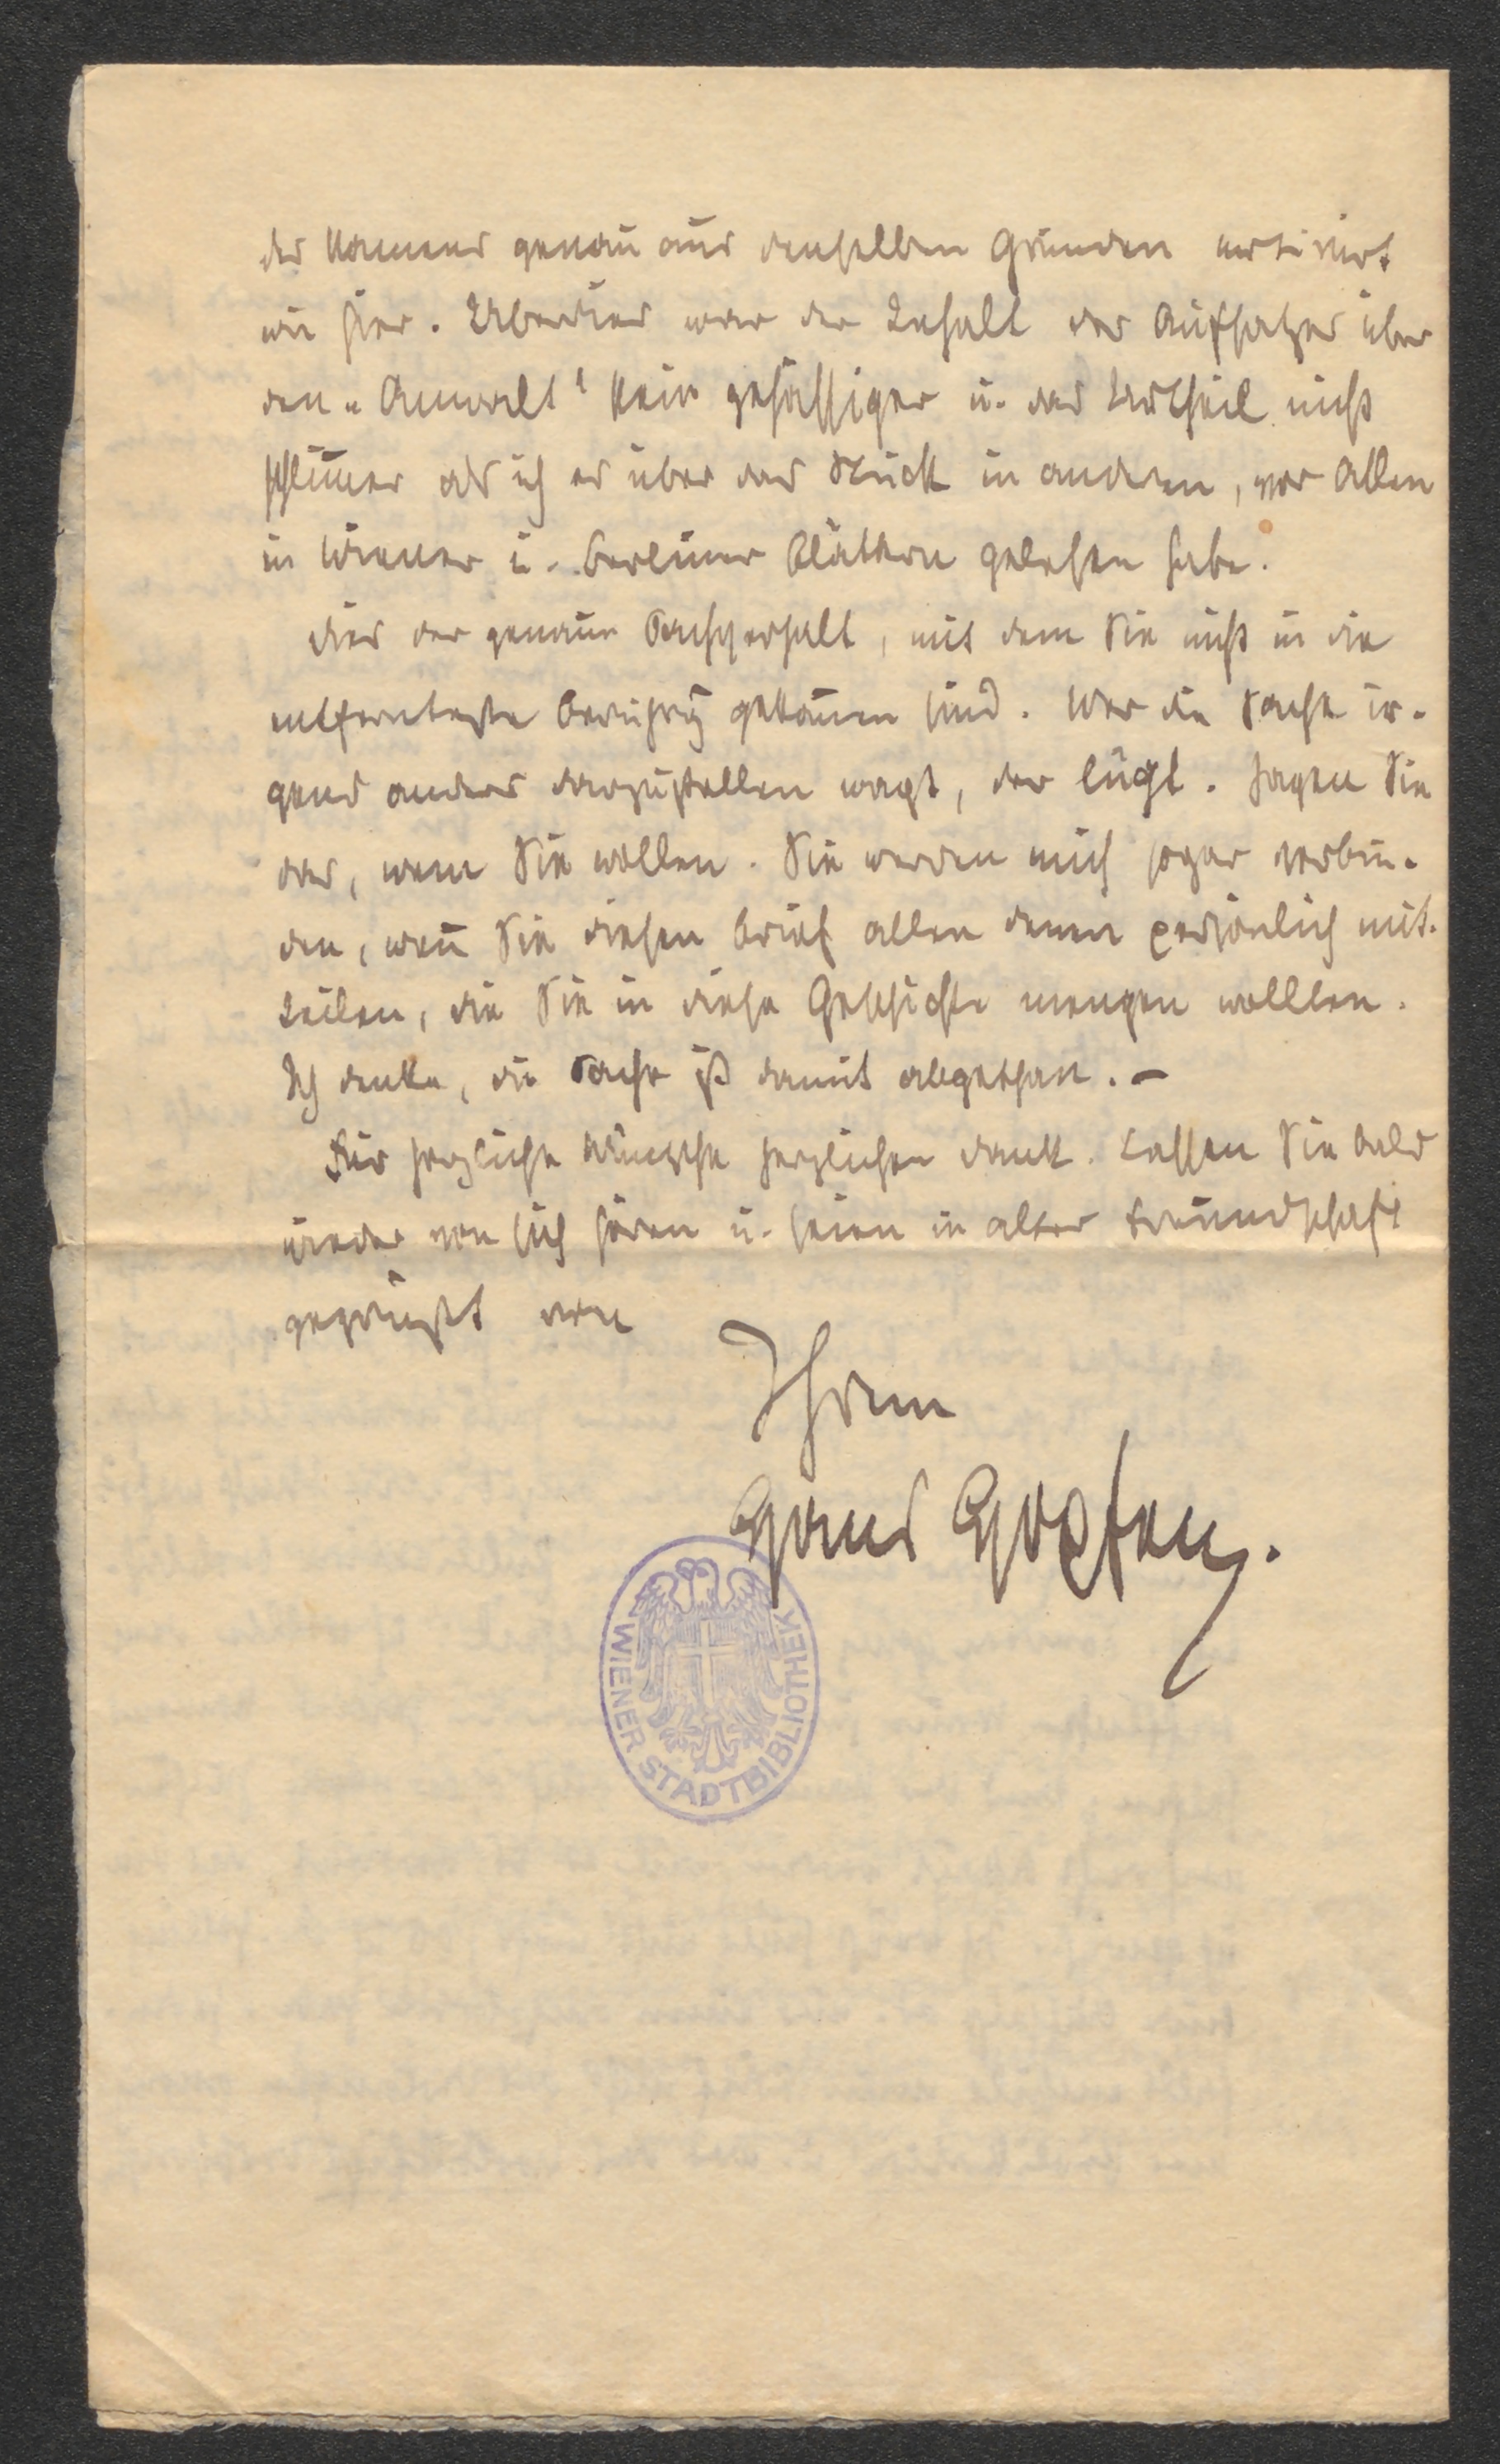 des Namens genau aus denselben Gründen motivirt
wie hier. Überdies war der Inhalt des Aufsatzes über
den „Anwalt“ kein gehässiger u. das Urtheil nicht
schlim̄er als ich es über das Stück in anderen, vor Allem
in Wiener u. Berliner Blättern gelesen habe.
Dies der genaue Sachverhalt, mit dem Sie nicht in die
entfernteste Berührg gekom̄en sind. Wer die Sache ir-
gend anders darzustellen wagt, der lügt. Sagen Sie
das, wem Sie wollen. Sie werden mich sogar verbin-
den, wen̄ Sie diesen Brief allen denen persönlich mit-
teilen, die Sie in diese Geschichte mengen wollen.
Ich denke, die Sache ist damit abgethan. –
Für herzliche Wünsche herzlichen Dank. Lassen Sie bald
wieder von sich hören u. seien in alter Freundschaft
gegrüßt von
Ihrem
Hans Hopfen.
WIENER STADTBIBLIOTHEK